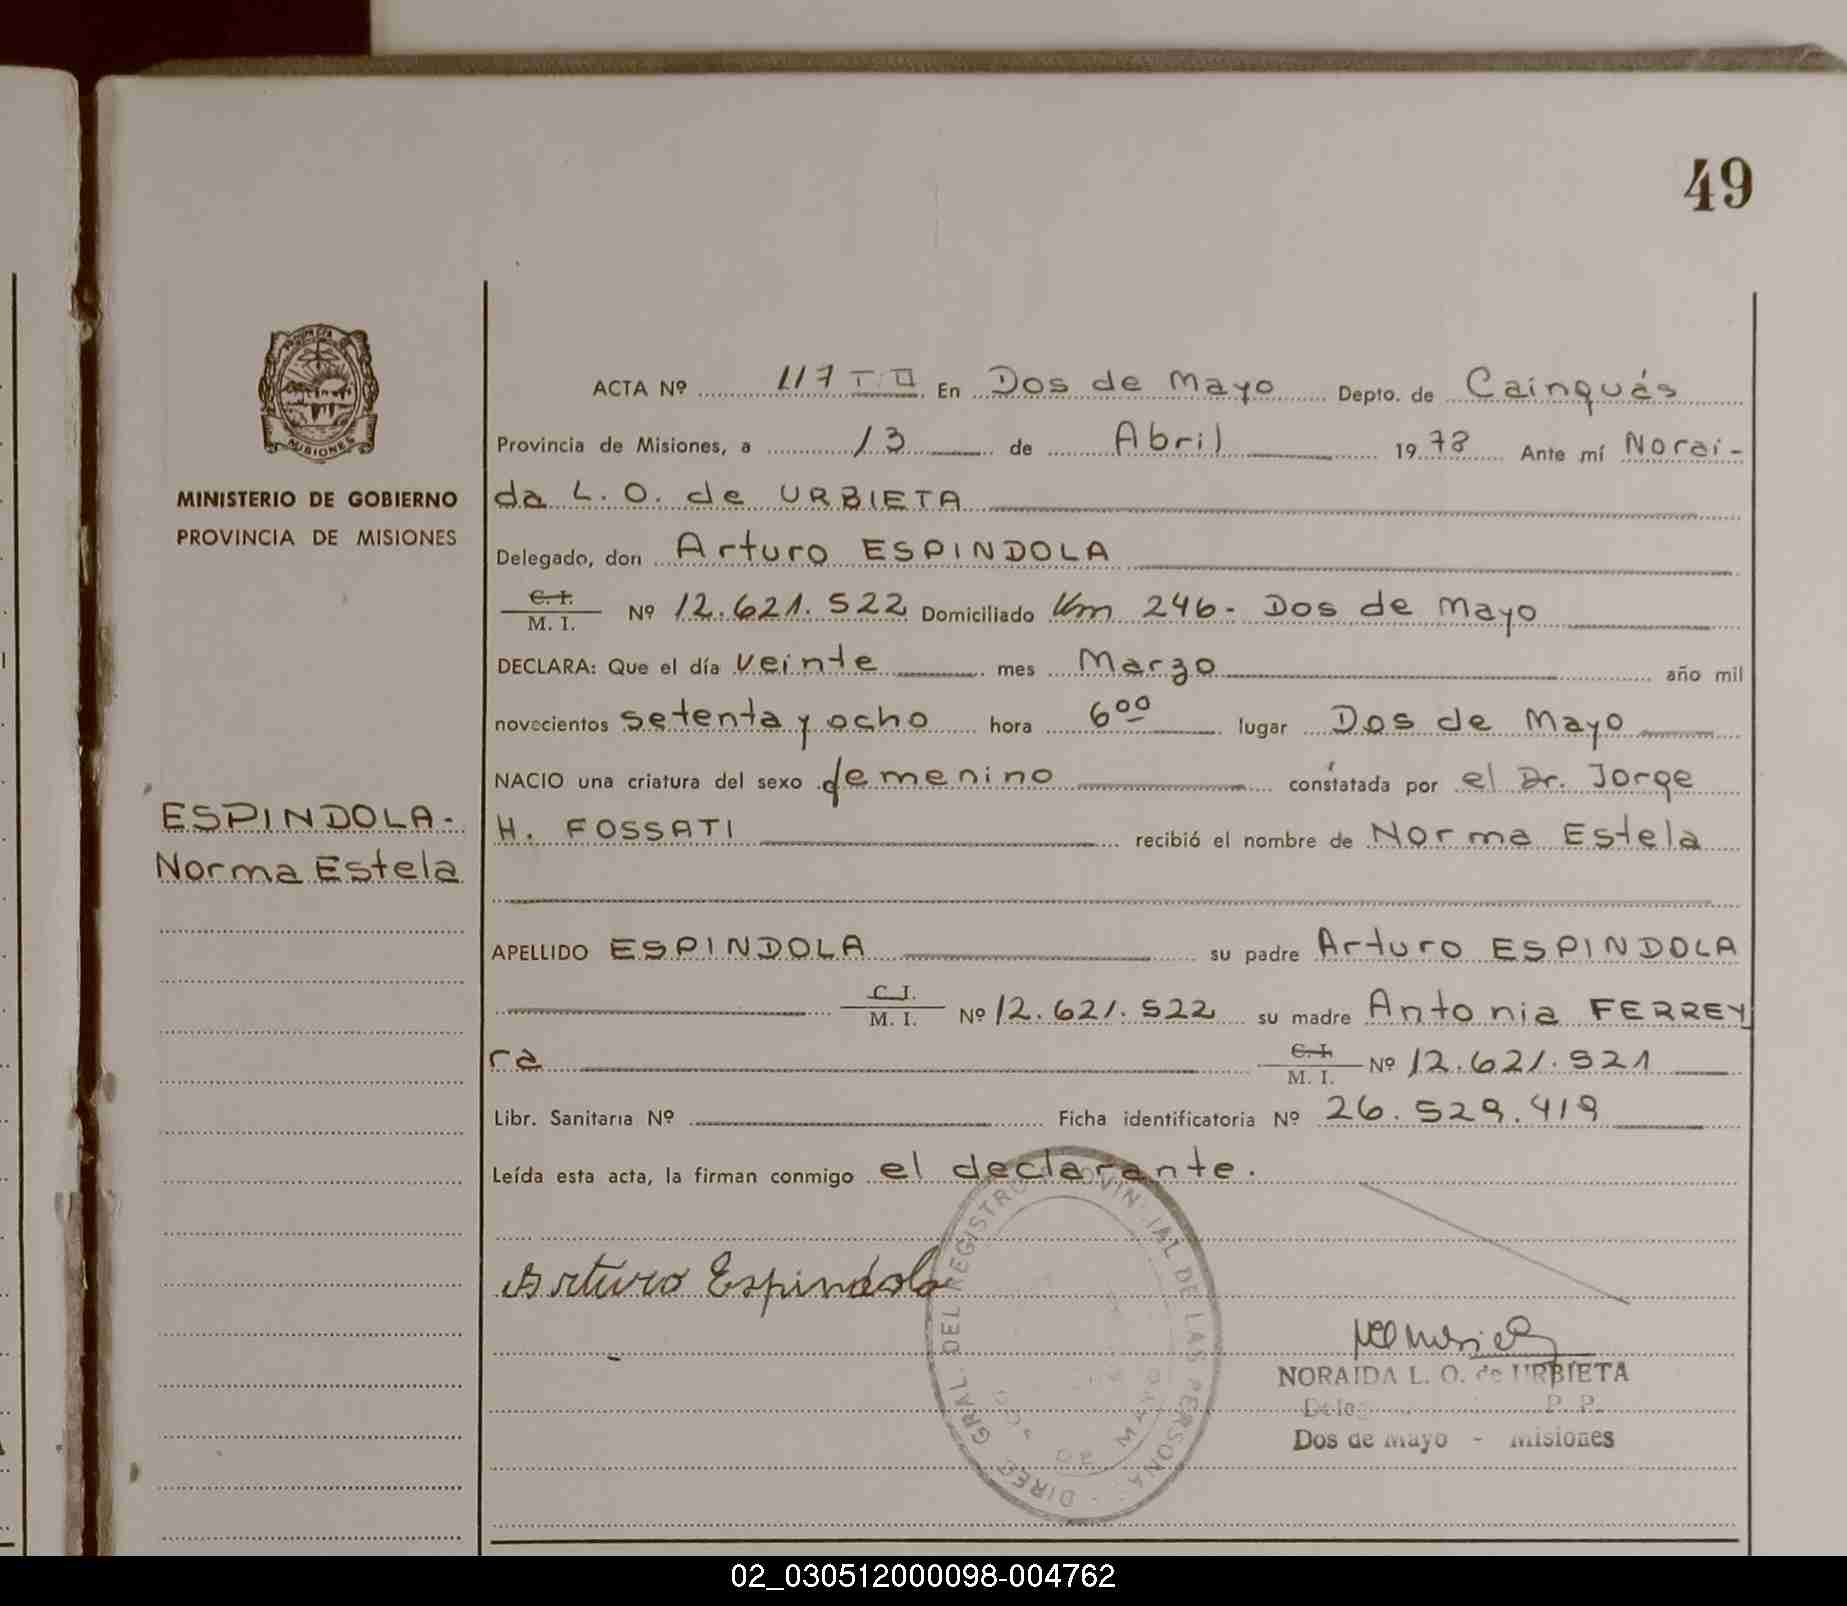 49
PROVINCIA
MISIONES
MINISTERIO DE GOBIERNO
PROVINCIA DE MISIONES
ESPINDOLA.
Norma Estela
ACTA Nº 117 T II En Dos de Mayo Depto. de Cainguás
Provincia de Misiones, a 13 de Abril 1978 Ante mí Norai-
da L. O. de URBIETA
Delegado, don Arturo ESPINDOLA
C. I. / M. I. Nº 12.621.522 Domiciliado Km 246- Dos de Mayo
DECLARA: Que el día veinte mes Marzo año mil
novecientos setenta y ocho hora 6 00 lugar Dos de Mayo
NACIO una criatura del sexo femenino constatada por el Dr. Jorge
H. FOSSATI recibió el nombre de Norma Estela
APELLIDO ESPINDOLA su padre Arturo ESPINDOLA
C. I. / M. I. Nº 12.621.522 su madre Antonia FERREY
ra C. I. / M. I. Nº 12.621.521
Libr. Sanitaria Nº Ficha identificatoria Nº 26.529.419
Leída esta acta, la firman conmigo el declarante.
Arturo Espindola
DIREC. GRAL. DEL REGISTRO PROVINCIAL DE LAS PERSONAS
DOS DE MAYO
NORAIDA L. O. de URBIETA
P. P.
Dos de Mayo - Misiones
02_030512000098-004762